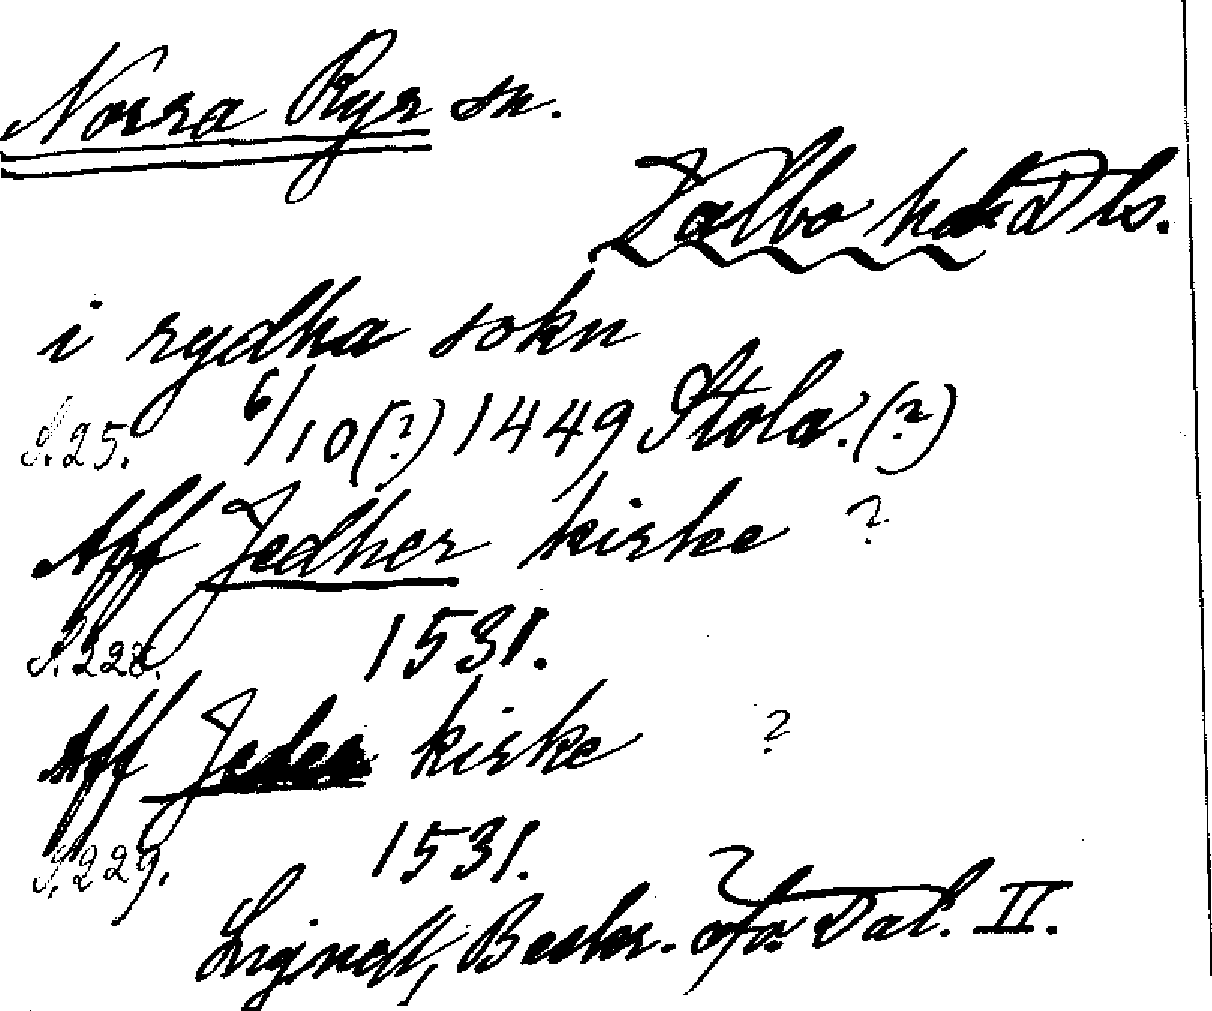 Norra Ryr sn.
Valbo hd Dls.
i rydha sokn
S. 25. 6/10(?) 1449 Stola. (?)
Aff Jedher kirke ?
S. 228. 1531.
Aff Jeder kirke ?
S. 229. 1531.
Lignell, Beskr. öfv. Dal. II.